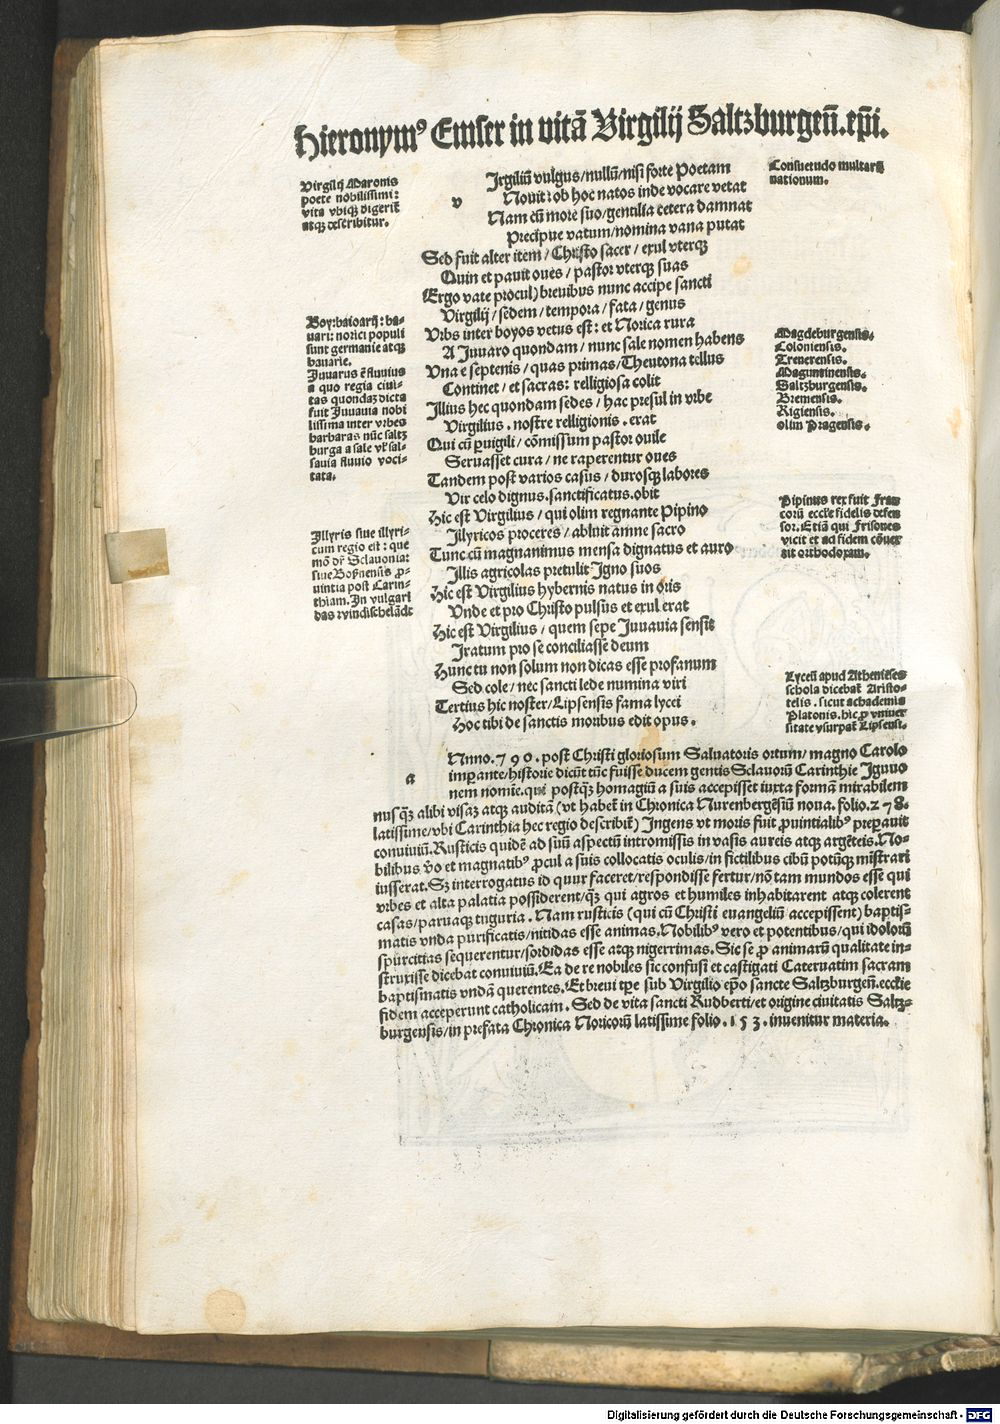 Hieronymꝰ Emser in vitā Virgilij Saltzburgeñ.ep̄i.
Virgilij Maronis
poete nobilissimi:
vita vbiqꝫ digerit̄
atqꝫ describitur.
Consuetudo multarꝫ
nationum.
v
Irgiliū vulgus/nullū/nisi forte Poetam
Novit: ob hoc natos inde vocare vetat
Nam cū more suo/gentilia cetera damnat
Precipue vatum/nomina vana putat
Sed fuit alter item/Christo sacer/exul vterqꝫ
Quin et pavit oues/pastor vterqꝫ suas
(Ergo vate procul) brevibus nunc accipe sancti
Virgilij/sedem/tempora/fata/genus
Vrbs inter boyos vetus est: et Norica rura
A Juvaro quondam/nunc sale nomen habens
Vna e septenis/quas primas/Theutona tellus
Continet/et sacras: relligiosa colit
Illius hec quondam sedes/hac presul in vrbe
Virgilius.nostre relligionis.erat
Qui cū p̱uigili/cōmissum pastor ouile
Seruasset cura/ne raperentur oues
Tandem post varios casus/durosqꝫ labores
Vir celo dignus.sanctificatus.obit
Hic est Virgilius/qui olim regnante Pipino
Illyricos proceres/abluit amne sacro
Tunc cū magnanimus mensa dignatus et auro
Illis agricolas pretulit Igno suos
Hic est Virgilius hybernis natus in oris
Vnde et pro Christo pulsus et exul erat
Hic est Virgilius/quem sepe Juvavia sensit
Iratum pro se conciliasse deum
Hunc tu non solum non dicas esse profanum
Sed cole/nec sancti lede numina viri
Tertius hic noster/Lipsensis fama lycei
Hoc tibi de sanctis moribus edit opus.
Boy: baioarij: ba-
uari: norici populi
sunt germanie atqꝫ
bavarie.
Juvarus ē fluvius
a quo regia ciui-
tas quondaꝫ dicta
fuit Juvavia nobi
lissima inter vrbes
barbaras nūc saltz
burga a sale vł sal-
savia fluvio voci-
tata.
Illyris siue illyri-
cum regio est: que
mō dr̄ Sclauonia:
siue Boßnensis ꝓ-
uintia post Carin-
thiam. In vulgari
das windischelādt
Magdeburgensis.
Coloniensis.
Treverensis.
Maguntinensis.
Saltzburgensis.
Bremensis.
Rigiensis.
olim Pragensis.
Pipinus rex fuit Fran
corū eccl̄ie fidelis defen
sor. Etiā qui Frisones
vicit et ad fidem cōuer
tit orthodoxam.
Lyceū apud Athenieses
schola dicebat̄ Aristo-
telis. sicut achademia
Platonis. hic ꝓ vniuer
sitate vsurpat̄ Lipsensi.
a
Nno.790.post Christi gloriosum Saluatoris ortum/magno Carolo
imp̱ante/historie dicūt tūc fuisse ducem gentis Sclauorū Carinthie Ignuo
nem nomie.qui postqꝫ homagiū a suis accepisset iuxta formā mirabilem
nusqꝫ alibi visaꝫ atqꝫ auditā (vt habet̄ in Chronica Nurenbergēsiū noua. folio.278.
latissime/vbi Carinthia hec regio describit̄) Ingens vt moris fuit ꝓuintialibꝰ prep̱auit
conuiuiū.Rusticis quidē ad suū aspectū intromissis in vasis aureis atqꝫ argēteis.No-
bilibus v̄o et magnatibꝰ ꝓcul a suis collocatis oculis/in fictilibus cibū potūqꝫ mīstrari
iusserat.Sꝫ interrogatus id quur faceret/respondisse fertur/nō tam mundos esse qui
vrbes et alta palatia possiderent/qꝫ qui agros et humiles inhabitarent atqꝫ colerent
casas/paruaqꝫ tuguria. Nam rusticis (qui cū Christi euangeliū accepissent) baptis-
matis vnda purificatis/nitidas esse animas.Nobilibꝰ vero et potentibus/qui idolorū
spurcitias sequerentur/sordidas esse atqꝫ nigerrimas.Sic se ꝓ animarū qualitate in-
struxisse dicebat conuiuiū.Ea de re nobiles sic confusi et castigati Cateruatim sacram
baptismatis vndā querentes.Et brevi tp̄e sub Virgilio ep̄o sancte Saltzburgeñ.ecclie
fidem acceperunt catholicam. Sed de vita sancti Rudberti/et origine ciuitatis Saltz-
burgensis/in prefata Chronica Noricorū latissime folio.153.inuenitur materia.
Digitalisierung gefördert durch die Deutsche Forschungsgemeinschaft - DFG